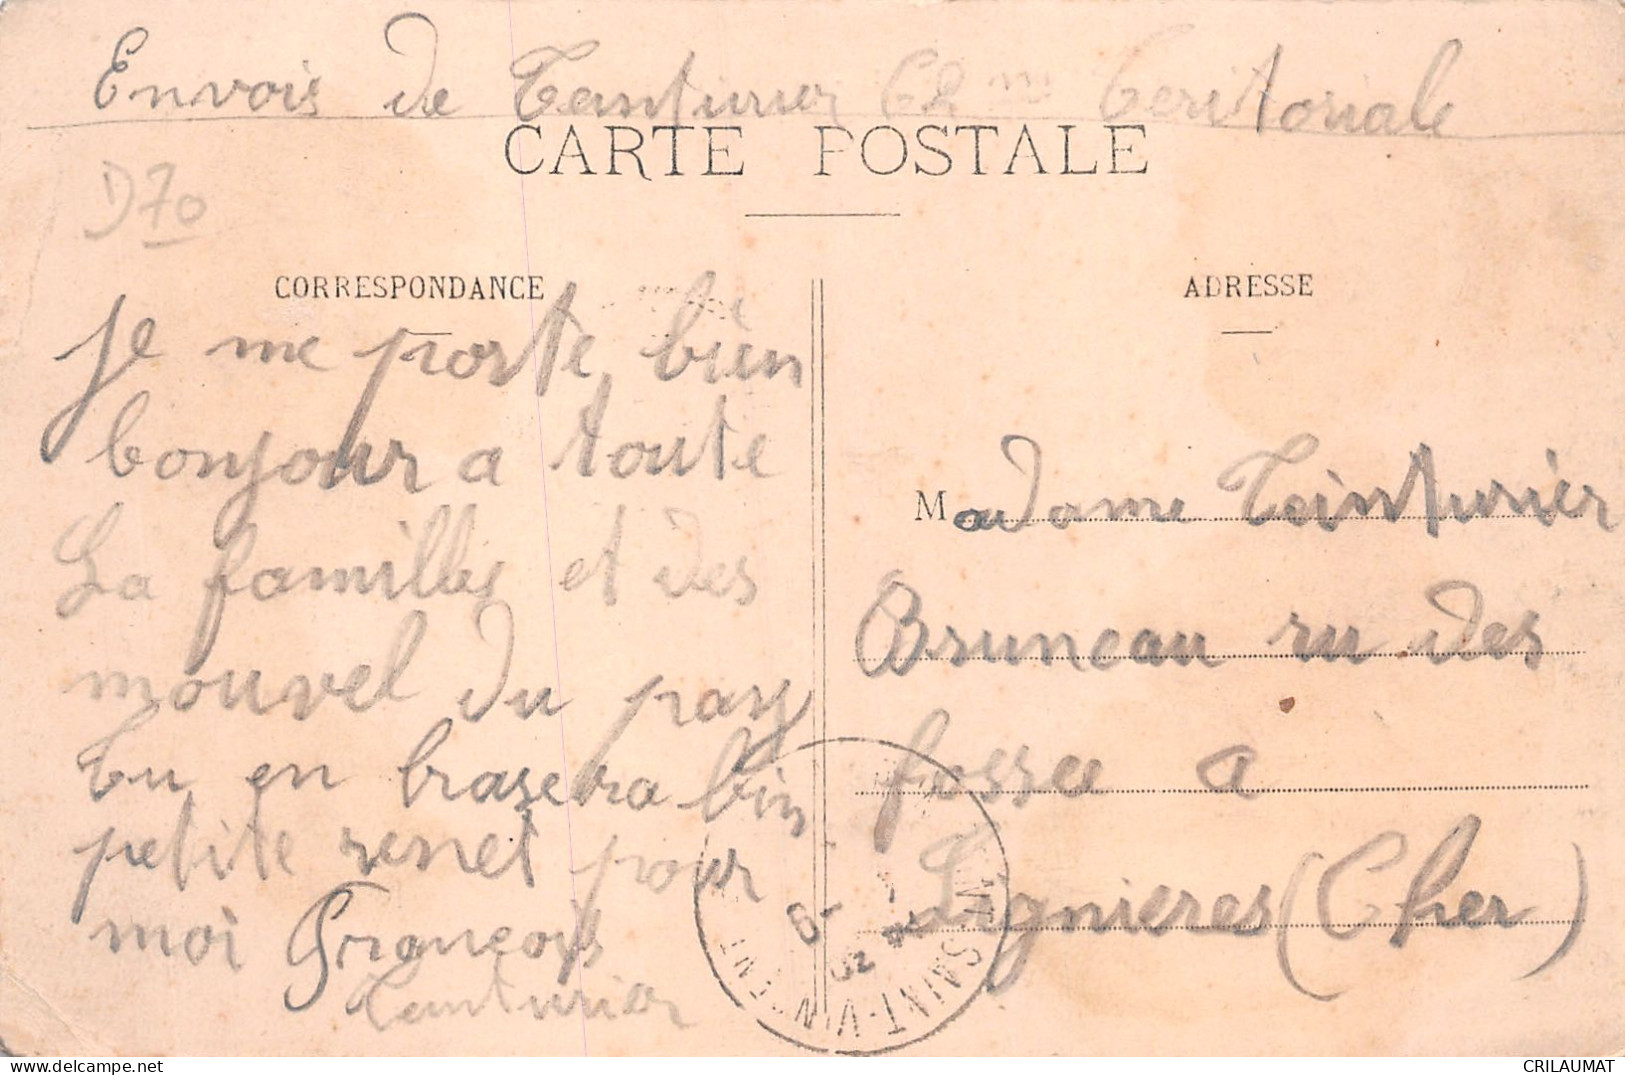 Envois de Tenturier 62me Teritoriale
CARTE POSTALE
D70
CORRESPONDANCE
Je me porte bien
bonjour a toute
La familles et des
nouvel du pays
tu en brasera bin
petite renet pour
moi François
Tenturier
ADRESSE
Madame Teinturier
Bruneau ru des
fosse a
Lignieres (Cher)
SAINT-VINCENT
CRILAUMAT